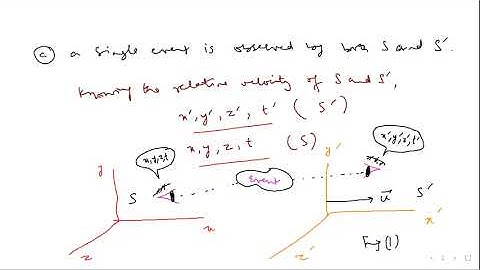 (c) a single event is observed by both S and S'.
Knowing the relative velocity of S and S',
x', y', z', t' ( S' )
x, y, z, t (S)
x,y,z,t
x',y',z',t'
y
S
Event
y'
u⃗
S'
x
x'
z
z'
(1)